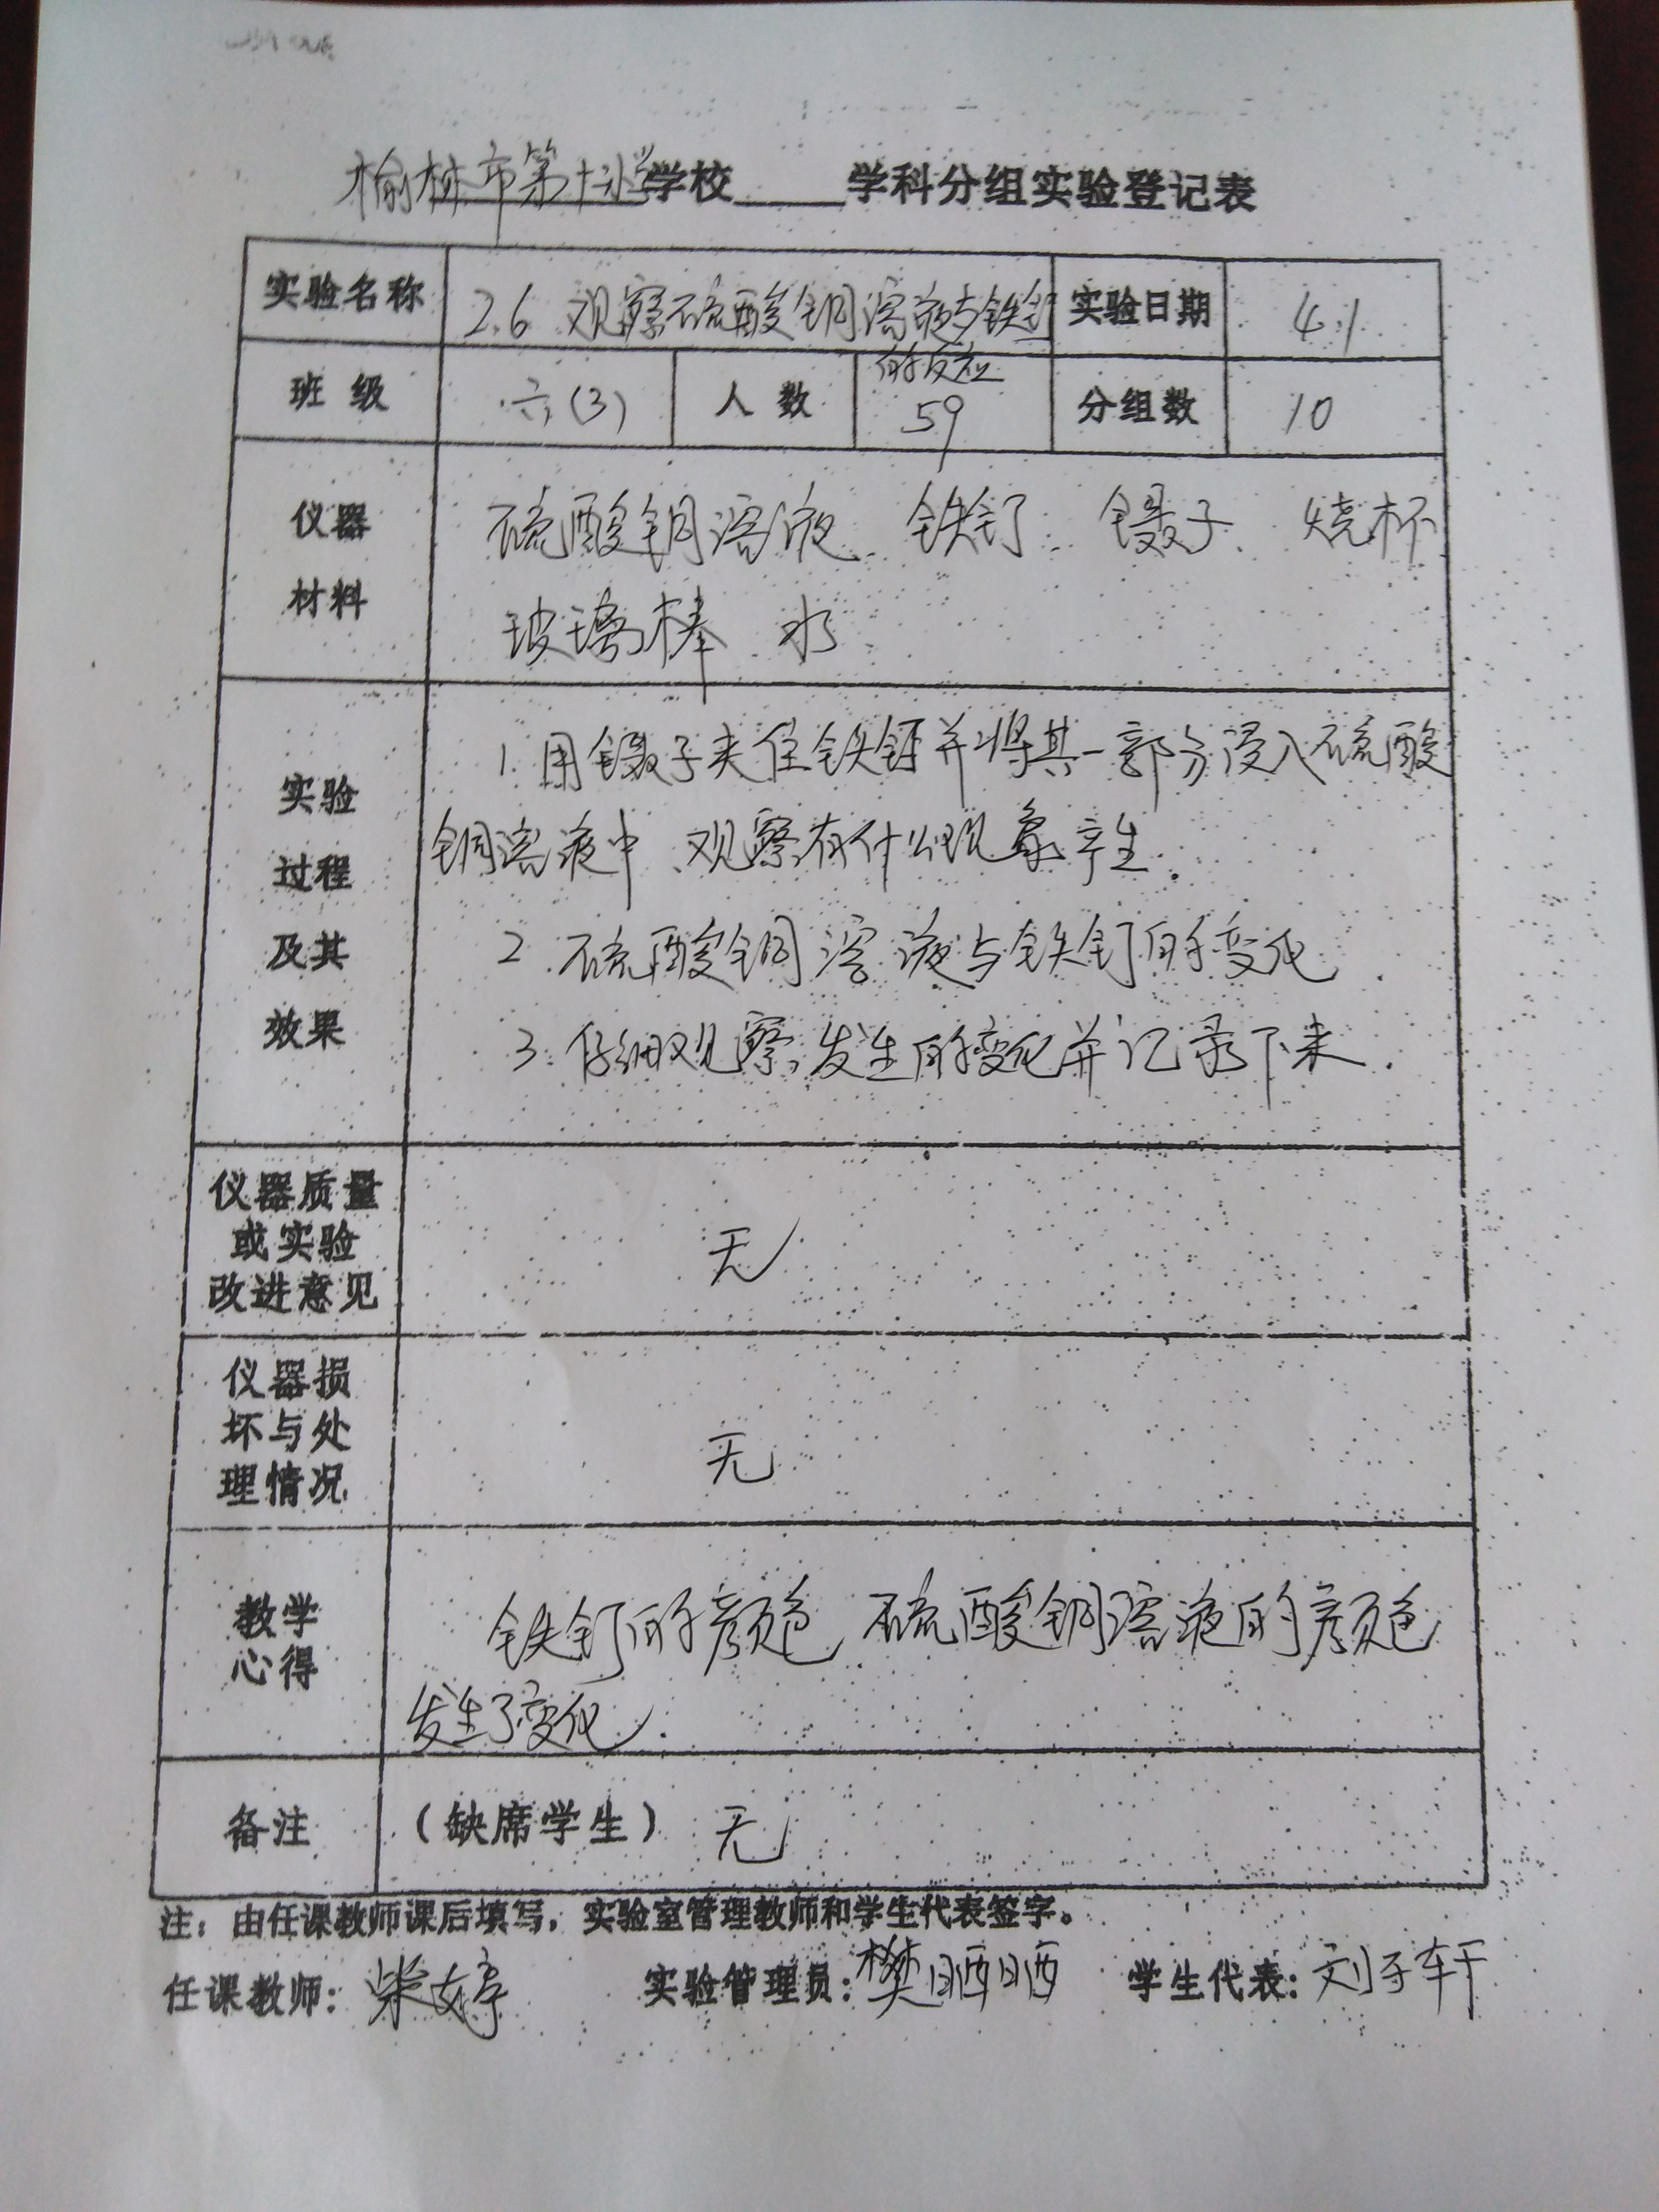 榆林市第十小学学校 学科分组实验登记表
实验名称 2.6 观察硫酸铜溶液与铁钉的反应 实验日期 4.1
班级 六(3) 人数 59 分组数 10
仪器材料 硫酸铜溶液、铁钉、镊子、烧杯
玻璃棒 水
实验过程及其效果
1. 用镊子夹住铁钉并将其一部分浸入硫酸
铜溶液中、观察有什么现象产生.
2. 硫酸铜溶液与铁钉的变化
3. 仔细观察发生的变化并记录下来.
仪器质量
或实验
改进意见
无
仪器损
坏与处
理情况
无
教学
心得
铁钉的颜色、硫酸铜溶液的颜色
发生了变化.
备注 (缺席学生) 无
注：由任课教师课后填写，实验室管理教师和学生代表签字。
任课教师：柴婷 实验管理员：樊晒晒 学生代表：刘子轩